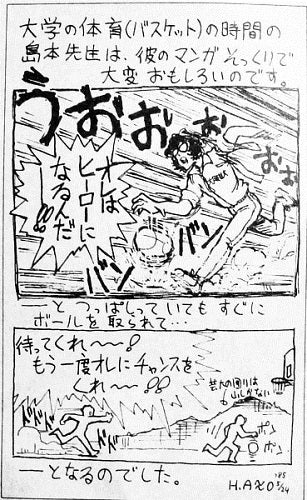 大学の体育(バスケット)の時間の
島本先生は、彼のマンガそっくりで
大変おもしろいのです。
うおおおおおお
オレは
ヒーローに
なるんだ
!!
バン
バン
―とつっぱしっていてもすぐに
ボールを取られて…
待ってくれ～!
もう一度オレにチャンスを
くれ～!!
ドドドド
ボン
ボン
―となるのでした。
H.AηO
'85
2/24